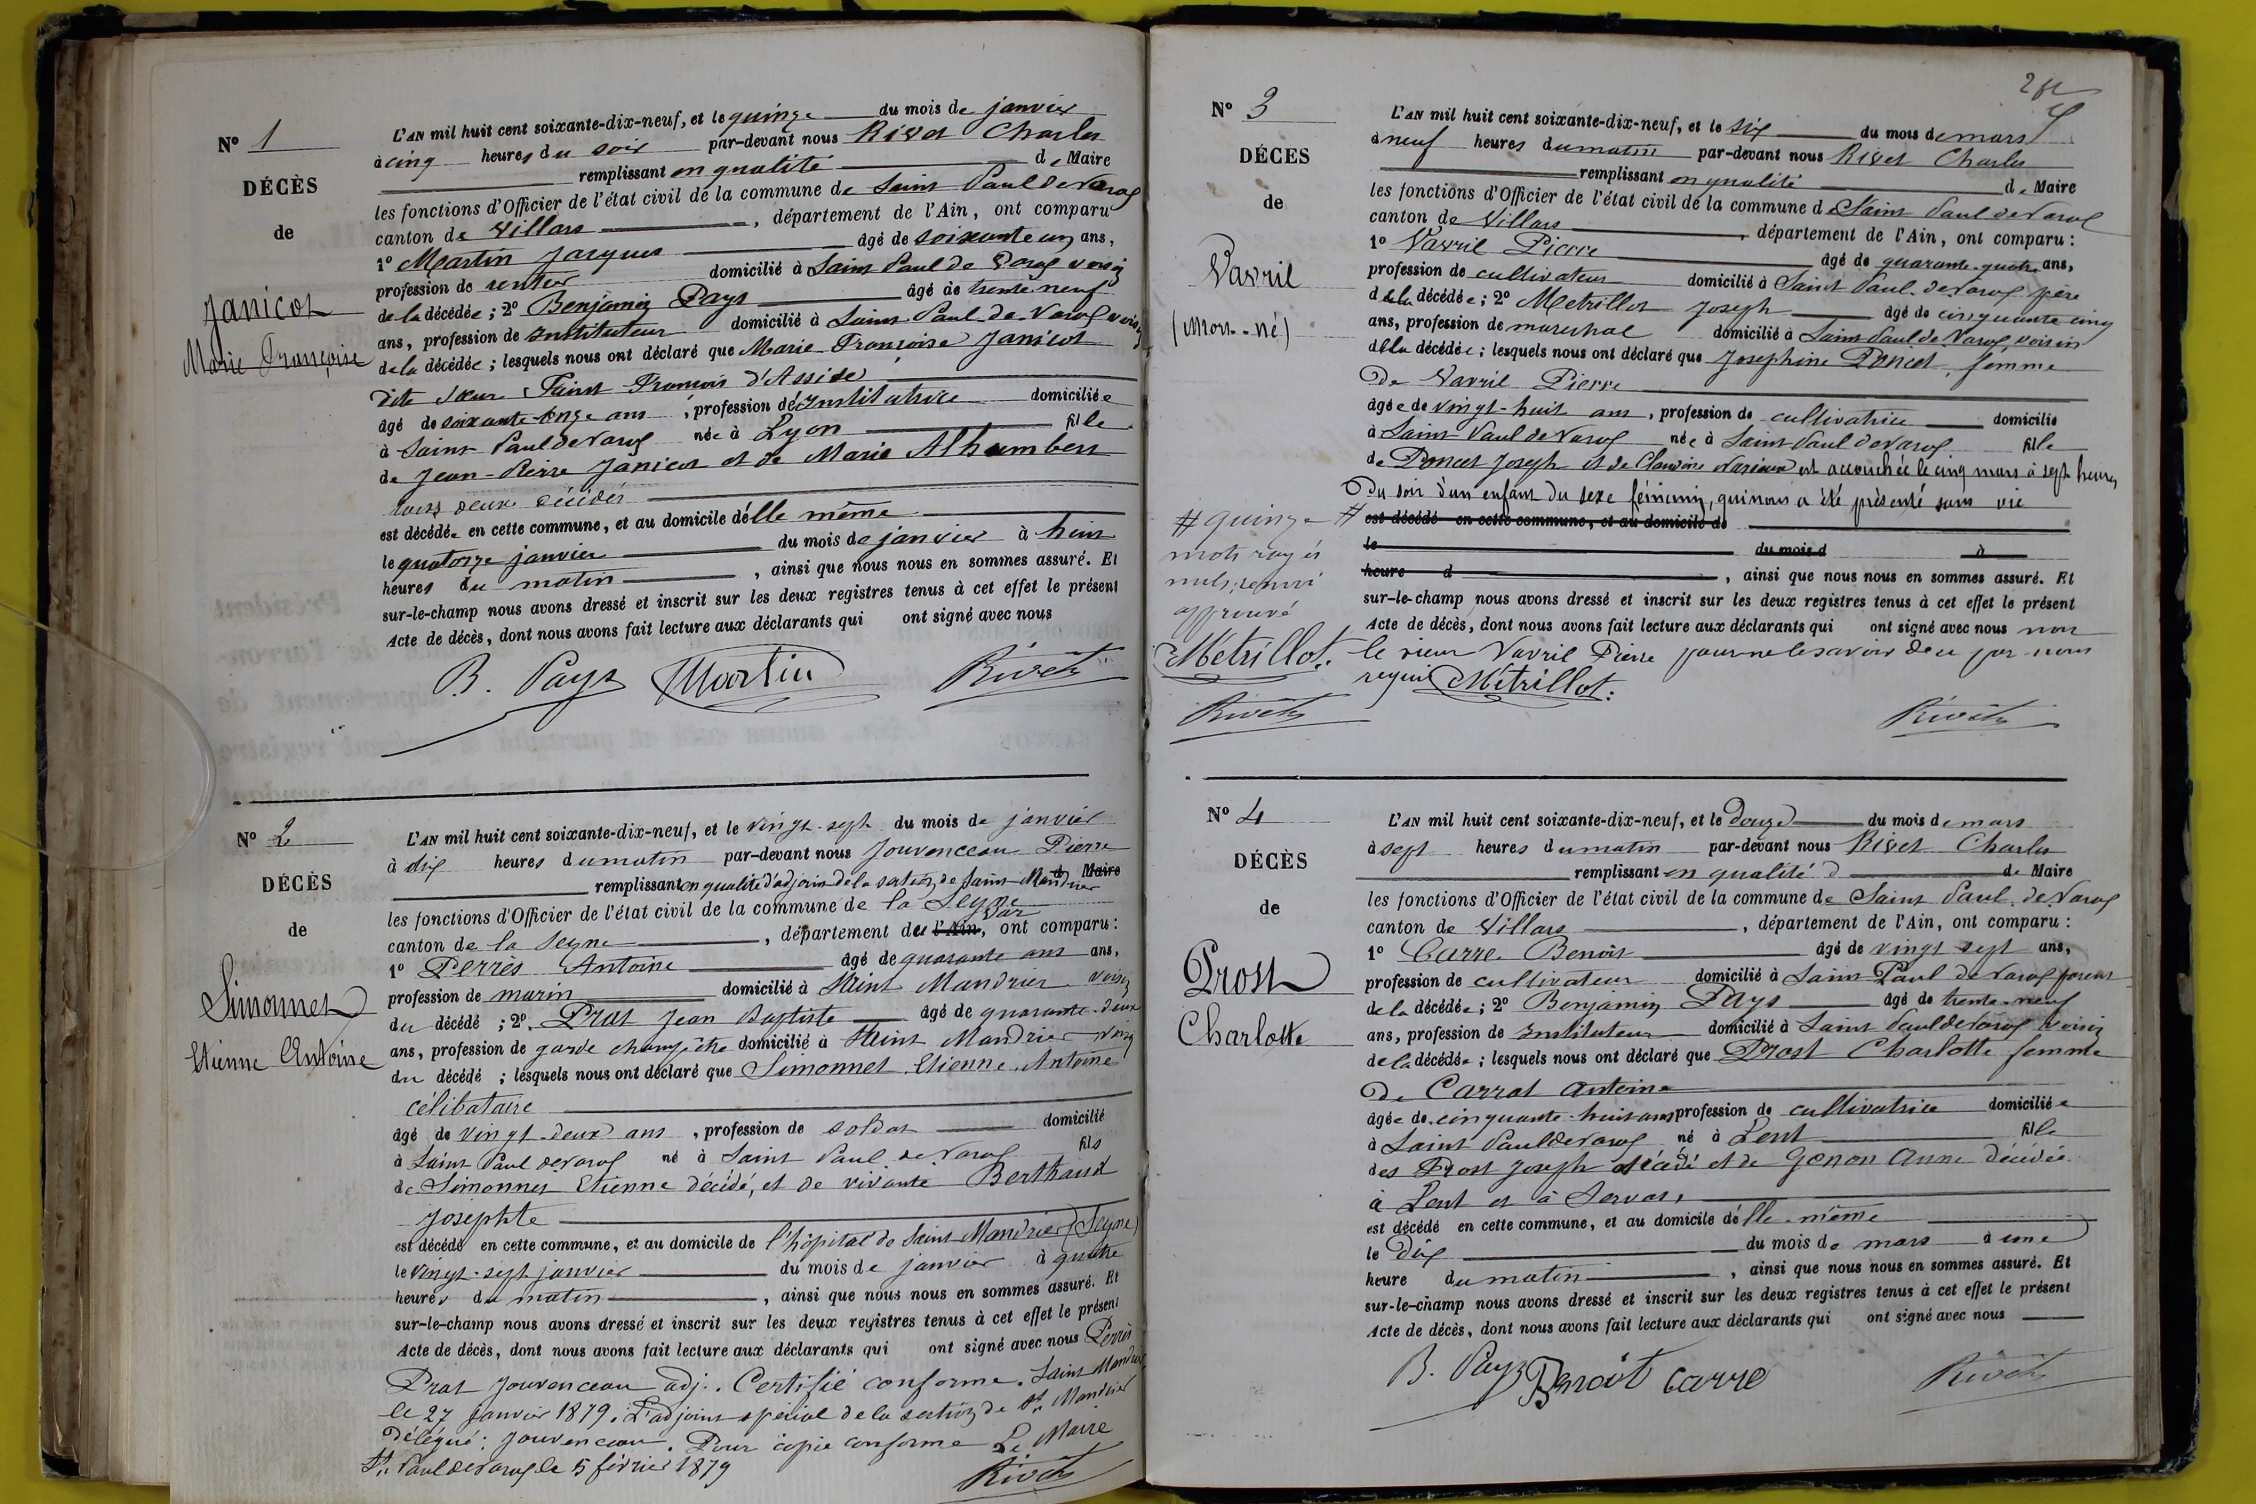 N° 1
DÉCÈS
de
Janicot
Marie Françoise
L'AN mil huit cent soixante-dix-neuf, et le quinze du mois de janvier
à cinq heures du soir par-devant nous Rivet Charles
remplissant en qualité de Maire
les fonctions d'Officier de l'état civil de la commune de Saint Paul de Varax
canton de Villars, département de l'Ain, ont comparu
1° Martin Jacques âgé de soixante un ans,
profession de rentier domicilié à Saint Paul de Varax voisin
de la décédée; 2° Benjamin Pays âgé de trente neuf
ans, profession de Instituteur domicilié à Saint Paul de Varax voisin
de la décédée; lesquels nous ont déclaré que Marie Françoise Janicot
dite Sœur Saint François d'Assise
âgé de soixante onze ans, profession d'Institutrice domiciliée
à Saint Paul de Varax née à Lyon fille
de Jean-Pierre Janicot et de Marie Alhumbert
tous deux décédés
est décédée en cette commune, et au domicile d'elle même
le quatorze janvier du mois de janvier à huit
heures du matin, ainsi que nous nous en sommes assuré. Et
sur-le-champ nous avons dressé et inscrit sur les deux registres tenus à cet effet le présent
Acte de décès, dont nous avons fait lecture aux déclarants qui ont signé avec nous
B. Pays Martin Rivet
N° 2
DÉCÈS
de
Simonnet
Etienne Antoine
L'AN mil huit cent soixante-dix-neuf, et le vingt-sept du mois de janvier
à dix heures du matin par-devant nous Jouvenceau Pierre
remplissant en qualité d'adjoint de la section de Saint Mandrier d Maire
les fonctions d'Officier de l'état civil de la commune de la Seyne
canton de la Seyne, département du l'Ain Var, ont comparu:
1° Perrès Antoine âgé de quarante ans ans,
profession de marin domicilié à Saint Mandrier voisin
du décédé; 2° Prat Jean Baptiste âgé de quarante-deux
ans, profession de garde champêtre domicilié à Saint Mandrier voisin
du décédé; lesquels nous ont déclaré que Simonnet Etienne Antoine
célibataire
âgé de vingt-deux ans, profession de soldat domicilié
à Saint Paul de Varax né à Saint Paul de Varax fils
de Simonnet Etienne décédé, et de vivante Berthaud
Josephte
est décédé en cette commune, et au domicile de l'hôpital de Saint Mandrier (Seyne)
le vingt-sept janvier du mois de janvier à quatre
heures du matin, ainsi que nous nous en sommes assuré. Et
sur-le-champ nous avons dressé et inscrit sur les deux registres tenus à cet effet le présent
Acte de décès, dont nous avons fait lecture aux déclarants qui ont signé avec nous Perrès
Prat Jouvenceau adj. Certifié conforme. Saint Mandrier
le 27 janvier 1879. L'adjoint spécial de la section de St Mandrier
délégué: Jouvenceau. Pour copie conforme Le Maire
St Paul de Varax le 5 février 1879
Rivet
N° 3
DÉCES
de
Vavril
(Mort-né)
L'AN mil huit cent soixante-dix-neuf, et le six du mois de mars
à neuf heures du matin par-devant nous Rivet Charles
remplissant en qualité de Maire
les fonctions d'Officier de l'état civil de la commune de Saint Paul de Varax
canton de Villars, département de l'Ain, ont comparu:
1° Vavril Pierre âgé de quarante-quatre ans,
profession de cultivateur domicilié à Saint Paul de Varax père
de la décédée; 2° Metrillot Joseph âgé de cinquante cinq
ans, profession de marechal domicilié à Saint Paul de Varax, voisin
de la décédée; lesquels nous ont déclaré que Josephine Poncet, femme
de Vavril Pierre
âgée de vingt-huit ans, profession de cultivatrice domicilié
à Saint Paul de Varax née à Saint Paul de Varax fille
de Poncet Joseph et de Claudine est accouchée le cinq mars à sept heures
du soir d'un enfant du sexe féminin, qui nous a été présenté sans vie
# est décédé en cette commune, et au domicile de
le du mois d à
heure d, ainsi que nous nous en sommes assuré. Et
sur-le-champ nous avons dressé et inscrit sur les deux registres tenus à cet effet le présent
Acte de décès, dont nous avons fait lecture aux déclarants qui ont signé avec nous non
le sieur Vavril Pierre pour ne le savoir de ce par nous
requis Métrillot.
Rivet
# quinze
mots rayés
nuls, renvoi
approuvé
Métrillot.
Rivet
N° 4
DÉCÈS
de
Prost
Charlotte
L'AN mil huit cent soixante-dix-neuf, et le douze du mois de mars
à sept heures du matin par-devant nous Rivet Charles
remplissant en qualité d de Maire
les fonctions d'Officier de l'état civil de la commune de Saint Paul de Varax
canton de Villars, département de l'Ain, ont comparu:
1° Carre Benoit âgé de vingt sept ans,
profession de cultivateur domicilié à Saint Paul de Varax parent
de la décédée; 2° Benjamin Pays âgé de trente-neuf
ans, profession de Instituteur domicilié à Saint Paul de Varax voisin
de la décédée; lesquels nous ont déclaré que Prost Charlotte femme
de Carrat Antoine
âgée de cinquante-huit ans profession de cultivatrice domiciliée
à Saint Paul de Varax né à Lent fille
des Prost Joseph décédé et de Genon Anne décédée
à Lent et à Servas,
est décédé en cette commune, et au domicile d'elle-même
le dix du mois de mars à une
heure du matin, ainsi que nous nous en sommes assuré. Et
sur-le-champ nous avons dressé et inscrit sur les deux registres tenus à cet effet le présent
Acte de décès, dont nous avons fait lecture aux déclarants qui ont signé avec nous
B. Pays Benoit Carre Rivet